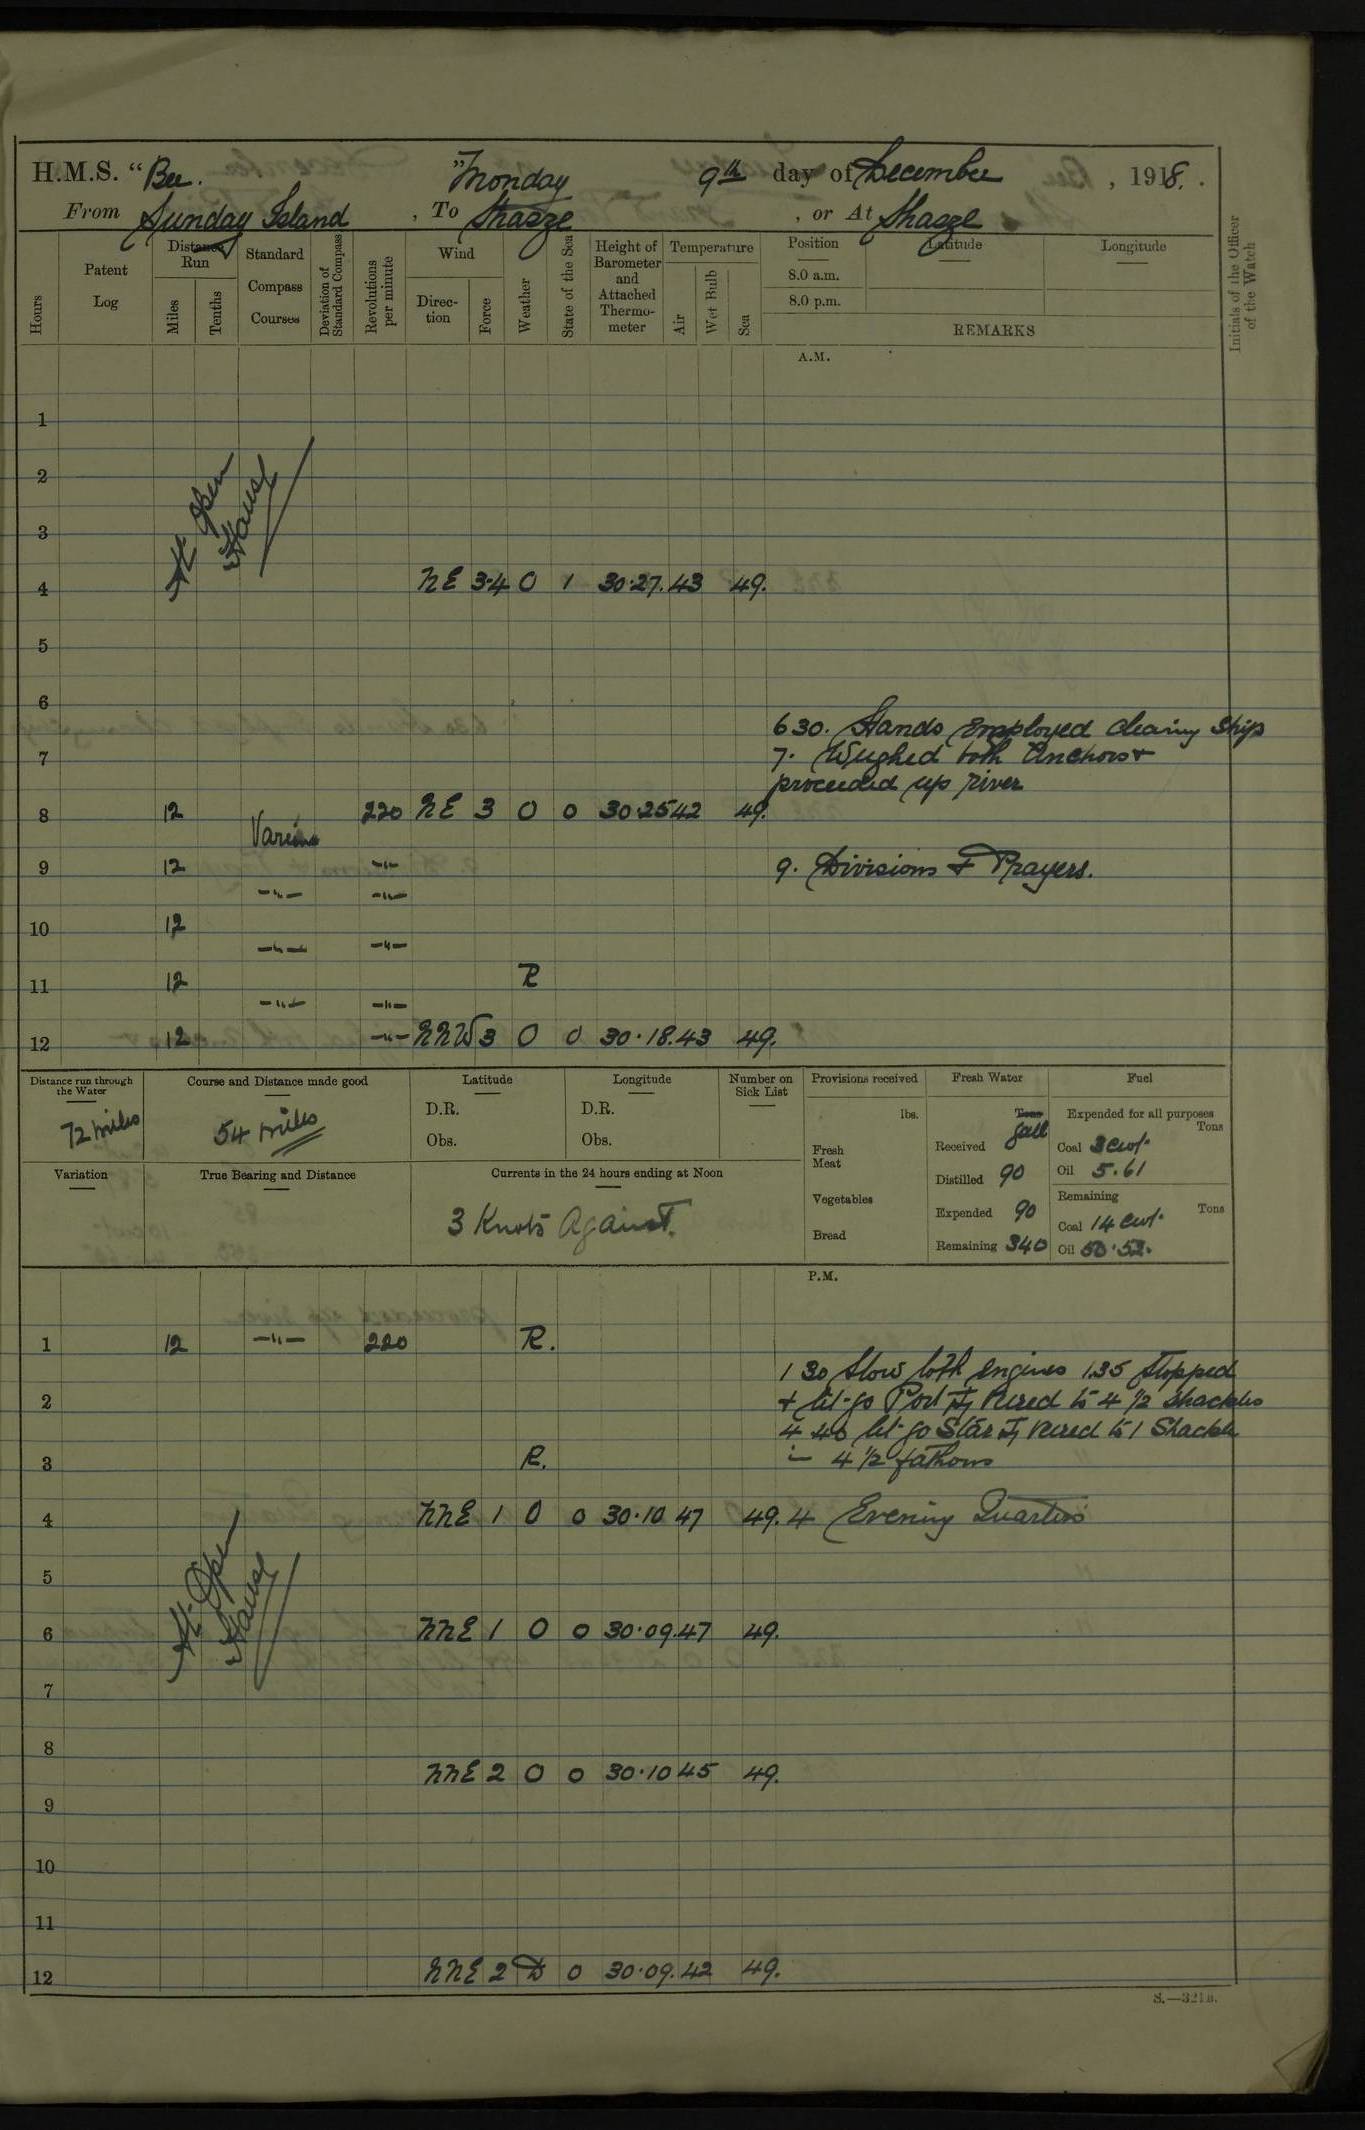 H.M.S. “Bee.” Monday 9th day of December, 1918.
From Sunday Island, To Shasze, or At Shasze
Hours
Patent Log
Distance Run
Miles
Tenths
Standard Compass Courses
Deviation of Standard Compass
Revolutions per minute
Wind
Direction
Force
Weather
State of the Sea
Height of Barometer and Attached Thermometer
Temperature
Air
Wet Bulb
Sea
Position
Latitude
Longitude
8.0 a.m.
8.0 p.m.
REMARKS
Initials of the Officer of the Watch
A.M.
1
2
3
At Open Hause
4 NE 3·4 O 1 30·27. 43 49.
5
6
630. Hands employed cleaning ship
7 7. Weighed both anchors &
proceeded up river
8 12 220 NE 3 O 0 30·25 42 49.
Various
9 12 -"- 9. Divisions & Prayers.
-"- -"-
10 12
-"- -"-
11 12 R
-"- -"-
12 12 -"- NNW 3 O 0 30·18. 43 49.
Distance run through the Water
72 miles
Course and Distance made good
54 miles
Latitude
D.R.
Obs.
Longitude
D.R.
Obs.
Number on Sick List
Provisions received
lbs.
Fresh Meat
Vegetables
Bread
Fresh Water
Tons
Gall
Received
Distilled 90
Expended 90
Remaining 340
Fuel
Expended for all purposes
Tons
Coal 3 cwt.
Oil 5.61
Remaining
Tons
Coal 14 cwt.
Oil 50.52.
Variation
True Bearing and Distance
Currents in the 24 hours ending at Noon
3 Knots Against.
P.M.
1 12 -"- 220 R.
1 30 Slow both engines 1.35 stopped
2 & let-go Port veered to 4 1/2 shackles
4 40 let-go Star veered to 1 Shackle
3 R. in 4 1/2 fathoms
4 NNE 1 O 0 30·10 47 49. 4 Evening Quarters
At Open Hause
5
6 NNE 1 O 0 30·09. 47 49.
7
8 NNE 2 O 0 30·10 45 49.
9
10
11
12 NNE 2 D 0 30·09. 42 49.
S.—321B.